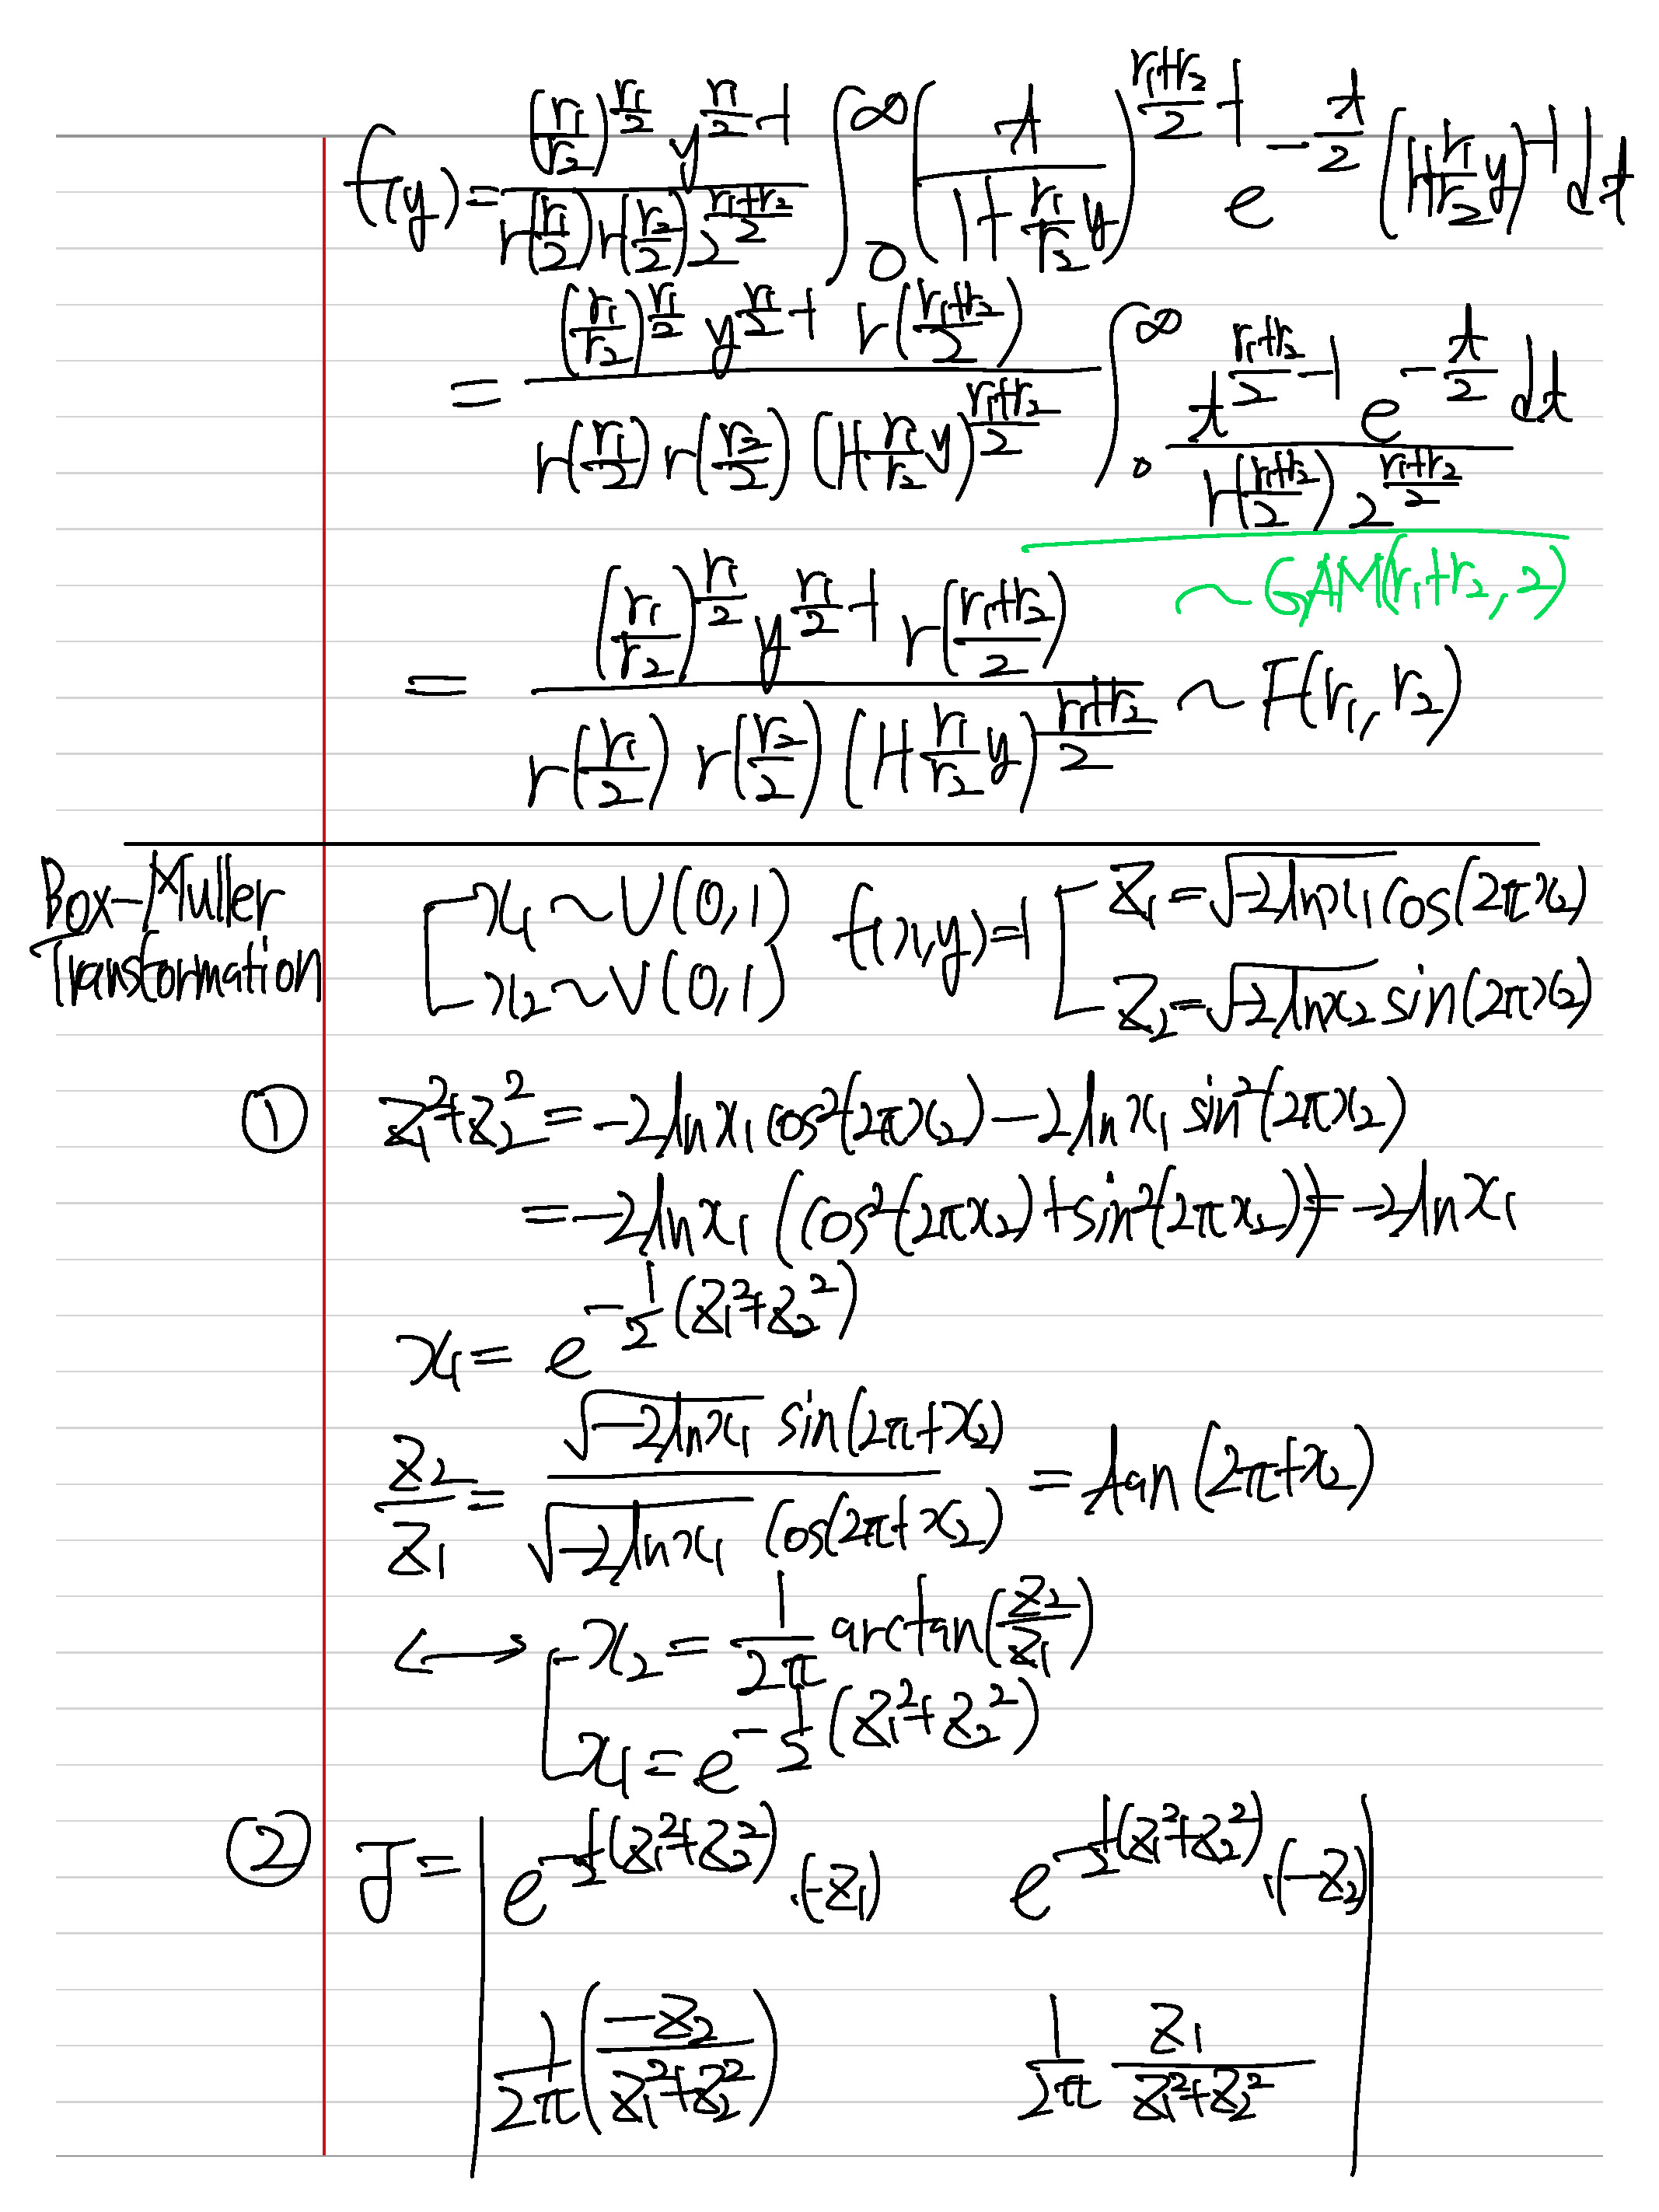 f(y) = \frac{(\frac{r_1}{r_2})^{\frac{r_1}{2}} y^{\frac{r_1}{2}-1}}{Γ(\frac{r_1}{2}) Γ(\frac{r_2}{2}) 2^{\frac{r_1+r_2}{2}}} \int_0^∞ (\frac{t}{1+\frac{r_1}{r_2}y})^{\frac{r_1+r_2}{2}-1} e^{-\frac{t}{2}} (1+\frac{r_1}{r_2}y)^{-1} dt
= \frac{(\frac{r_1}{r_2})^{\frac{r_1}{2}} y^{\frac{r_1}{2}-1} Γ(\frac{r_1+r_2}{2})}{Γ(\frac{r_1}{2}) Γ(\frac{r_2}{2}) (1+\frac{r_1}{r_2}y)^{\frac{r_1+r_2}{2}}} \int_0^∞ \frac{t^{\frac{r_1+r_2}{2}-1} e^{-\frac{t}{2}} dt}{Γ(\frac{r_1+r_2}{2}) 2^{\frac{r_1+r_2}{2}}}
~ GAM(r_1+r_2, 2)
= \frac{(\frac{r_1}{r_2})^{\frac{r_1}{2}} y^{\frac{r_1}{2}-1} Γ(\frac{r_1+r_2}{2})}{Γ(\frac{r_1}{2}) Γ(\frac{r_2}{2}) (1+\frac{r_1}{r_2}y)^{\frac{r_1+r_2}{2}}} ~ F(r_1, r_2)
Box-Muller
Transformation
[ x_1 ~ U(0,1) f(x,y)=1 [ z_1 = \sqrt{-2lnx_1} cos(2πx_2)
x_2 ~ U(0,1) z_2 = \sqrt{-2lnx_2} sin(2πx_2)
① z_1^2+z_2^2 = -2lnx_1 cos^2(2πx_2) - 2lnx_1 sin^2(2πx_2)
= -2lnx_1 (cos^2(2πx_2)+sin^2(2πx_2)) = -2lnx_1
x_1 = e^{-\frac{1}{2}(z_1^2+z_2^2)}
\frac{z_2}{z_1} = \frac{\sqrt{-2lnx_1} sin(2π+x_2)}{\sqrt{-2lnx_1} cos(2π+x_2)} = tan(2π+x_2)
⟷ [ x_2 = \frac{1}{2π} arctan(\frac{z_2}{z_1})
x_1 = e^{-\frac{1}{2}(z_1^2+z_2^2)}
② J = | e^{-\frac{1}{2}(z_1^2+z_2^2)}·(-z_1) e^{-\frac{1}{2}(z_1^2+z_2^2)}·(-z_2) |
\frac{1}{2π}(\frac{-z_2}{z_1^2+z_2^2}) \frac{1}{2π} \frac{z_1}{z_1^2+z_2^2}